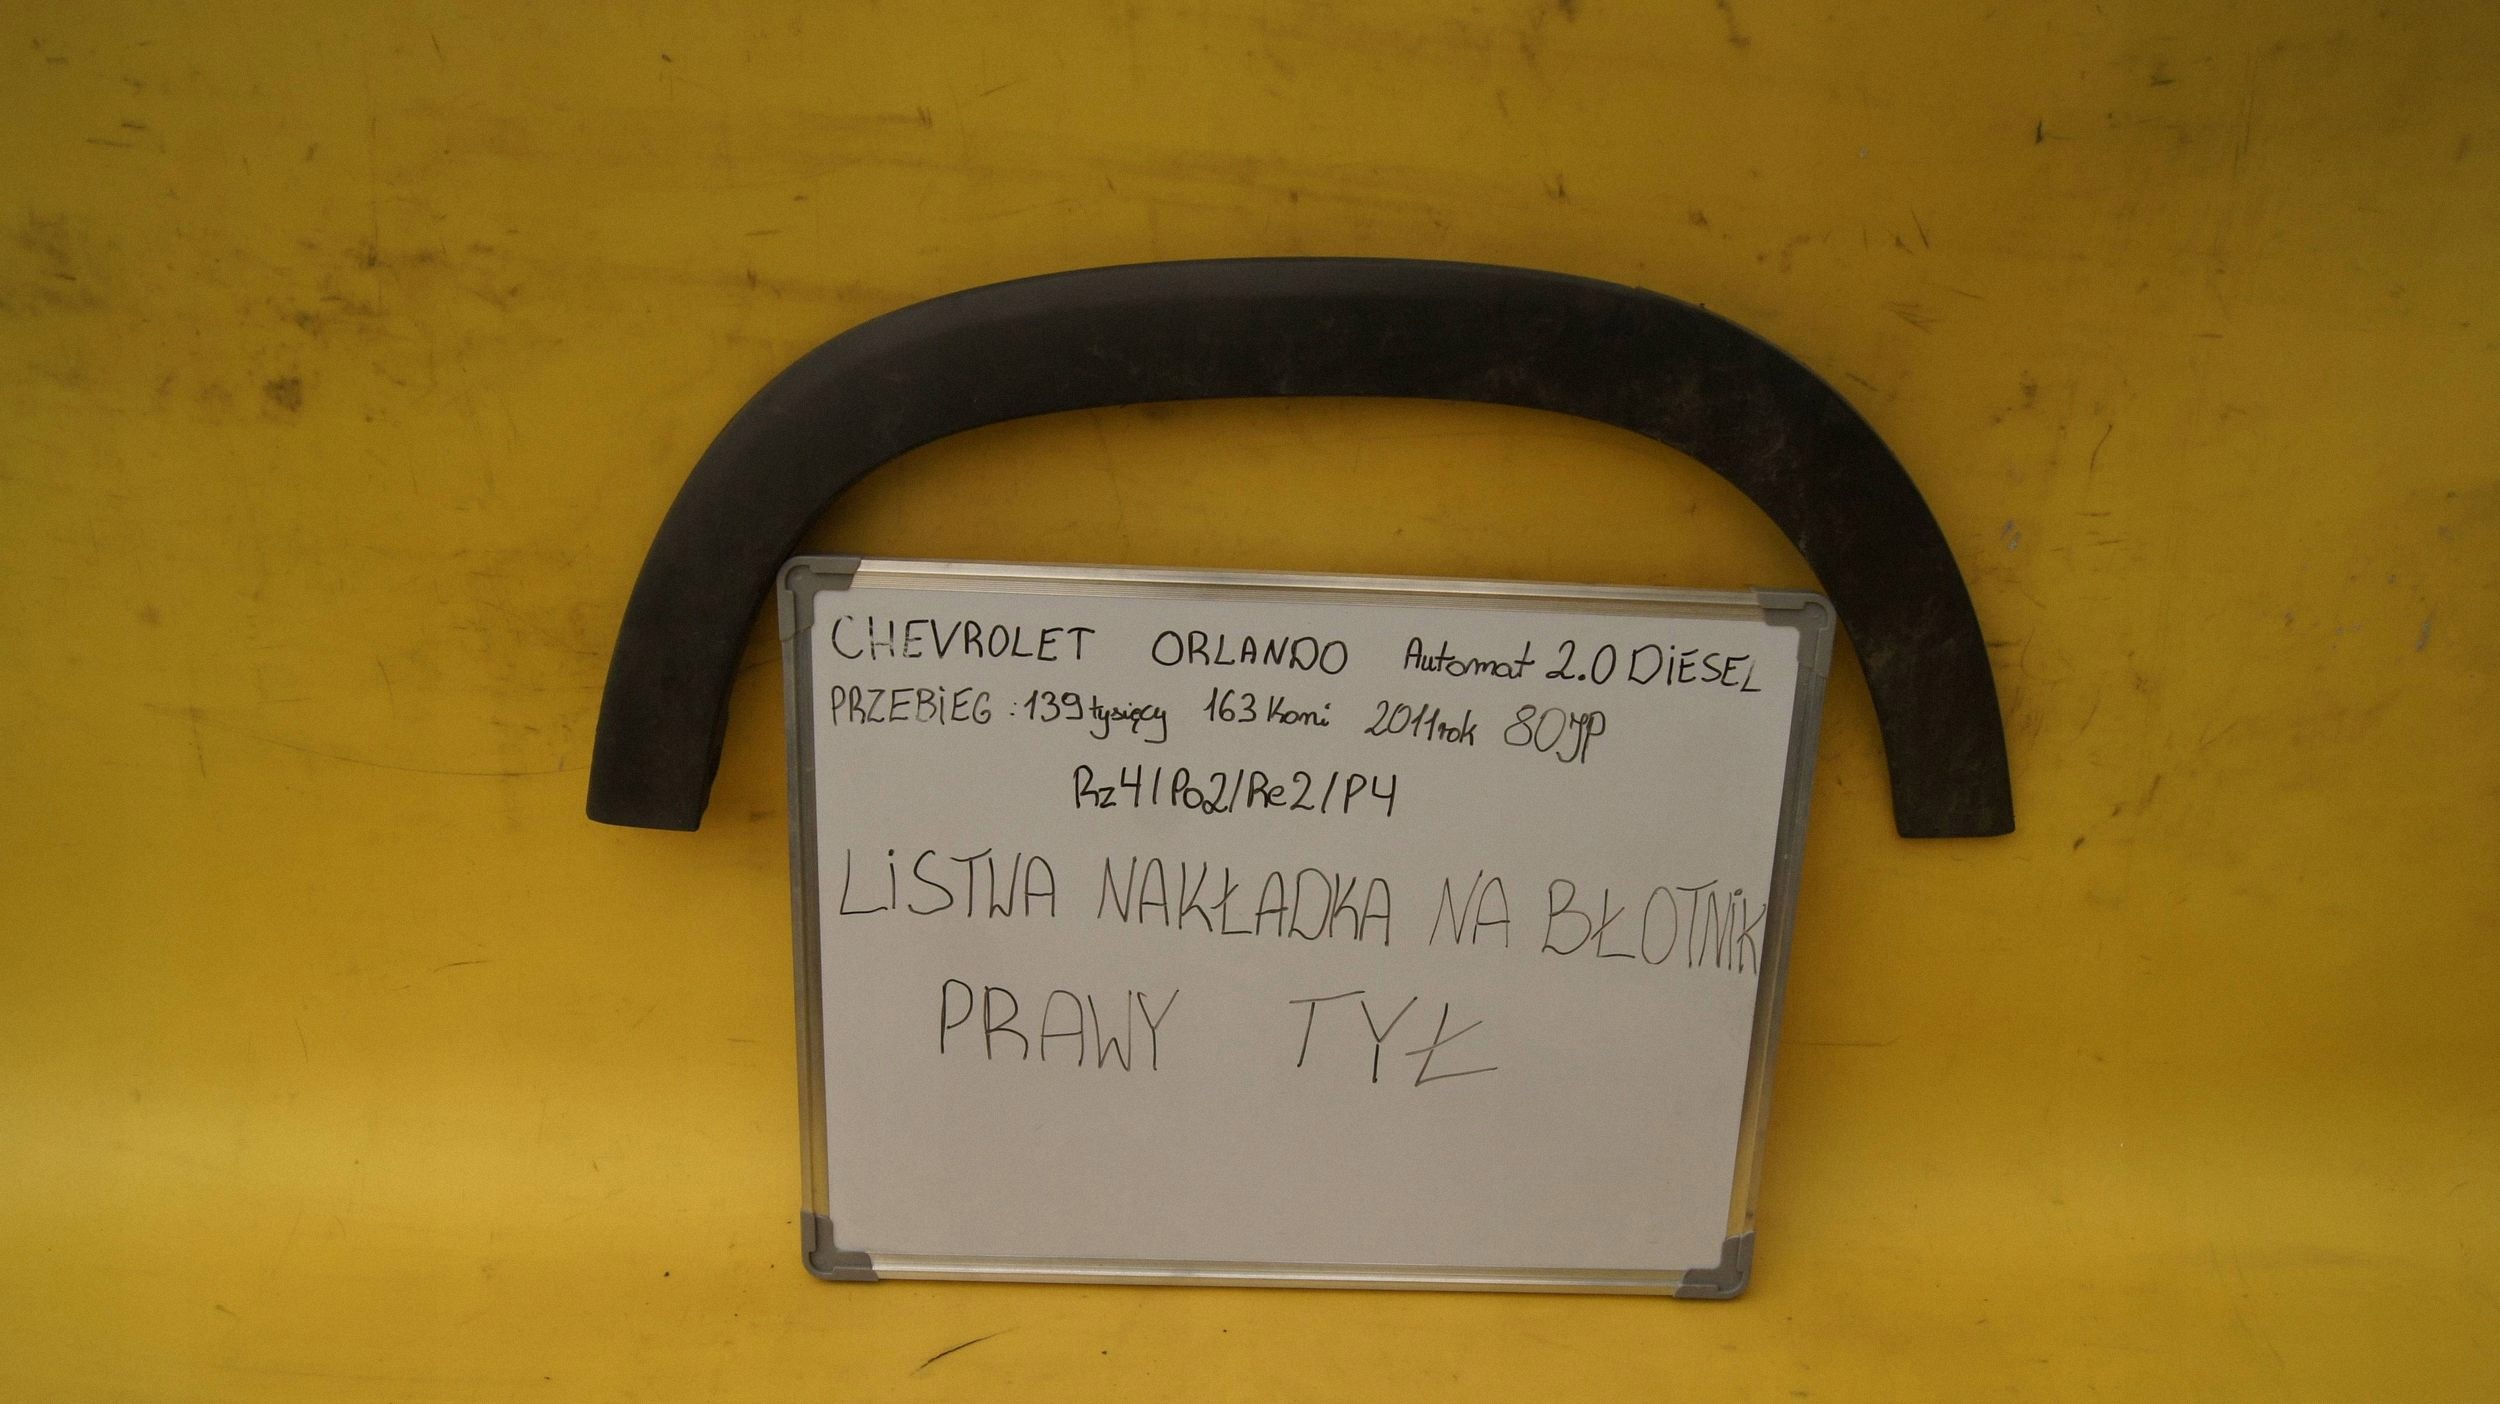 CHEVROLET ORLANDO Automat 2.0 DiESEL
PRZEBiEG : 139 tysięcy 163 Koni 2011 rok 80JP
Rz4/Po2/Re2/P4
LiSTWA NAKŁADKA NA BŁOTNiK
PRAWY TYŁ